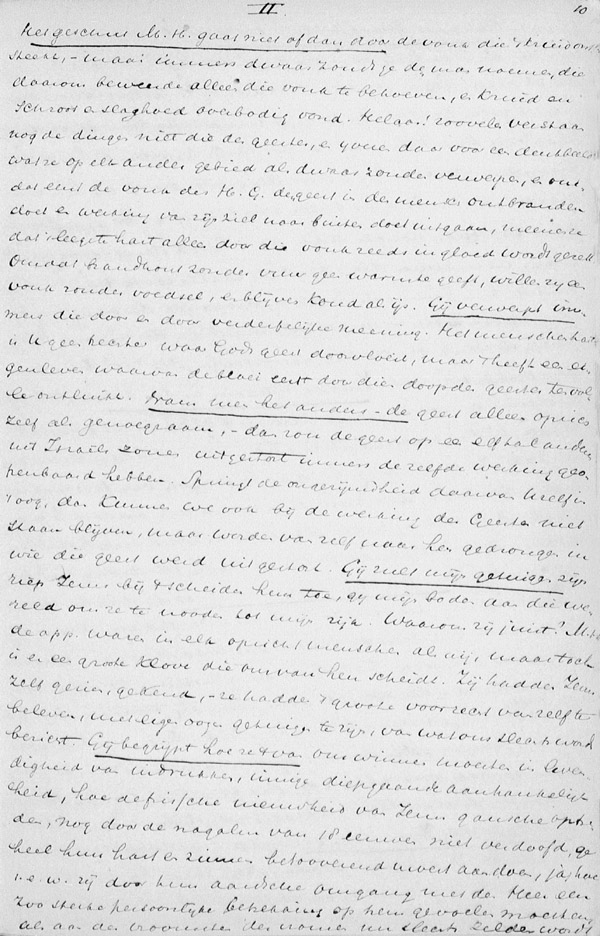 II. 10
Het geschut M. H. gaat niet af dan door de vonk die 't kruid ont-
steekt, – maar immers dwaas zoudt ge dezulken noemen, die
daarom beweerde alleen die vonk te behoeven, en kruid en
schroot en slaghoed overbodig vond. Helaas! zoovelen verstaan
nog de dingen niet die des geestes, en ijveren daar voor een denkbeeld
wat ze op elk ander gebied als dwaas zouden verwerpen, en om-
dat eerst de vonk des H. G. den geest in den mensch ontbranden
doet en werking van zijn ziel naar buiten doet uitgaan, meenen ze
dat 't leegste hart alleen door die vonk reeds in gloed wordt gezet.
Omdat brandhout zonder vuur geen warmte geeft, willen zij de
vonk zonder voedsel, en blijven koud als ijs. Gij verwerpt im-
mers die door en door verderfelijke meening. Het menschenhart
is U geen heester waar Gods geest doorvloeit, maar 't heeft een ei-
gen leven waarvan de bloei eerst door dien doop des geestes ten vol-
le ontluikt. Ware het anders – de geest alleen op zich
zelf als genoegzaam, – dan zou de geest op een elftal andere
uit Israëls zonen uitgestort immers dezelfde werking geo-
penbaard hebben. Springt de ongerijmdheid daarvan U zelf in
't oog, dan kunnen we ook bij de werking des Geestes niet
staan blijven, maar worden van zelf naar hen gedrongen in
wie die geest werd uitgestort. Gij zult mijn getuigen zijn
riep Jezus bij 't scheiden hun toe, gij mijn boden aan die we-
reld om ze te nooden tot mijn rijk. Waarom zij juist? M. H.
de app. waren in elk opzicht menschen als wij, maar toch
is er een groote klove die ons van hen scheidt. Zij hadden Jezus
zelf gezien, gekend, – ze hadden 't groote voorrecht van zelf te
beleven, met eigen oogen getuigen te zijn, van wat ons slechts word
bericht. Gij begrijpt hoe ze 't van ons winnen moesten in leven-
digheid van indrukken, innige diepgaande aanhankelijk-
heid, hoe de frissche nieuwheid van Jezus gansche optre-
den, nog door de nagalm van 18 eeuwen niet verdoofd, ge
heel hun hart en zinnen betooverend moest aandoen, ja, hoe
i. e. w. zij door hun aardsche omgang met den Heer een
zoo sterke persoonlijke betrekking op hem gevoelen moesten,
als aan de vroomsten der vromen nu slechts zelden wordt